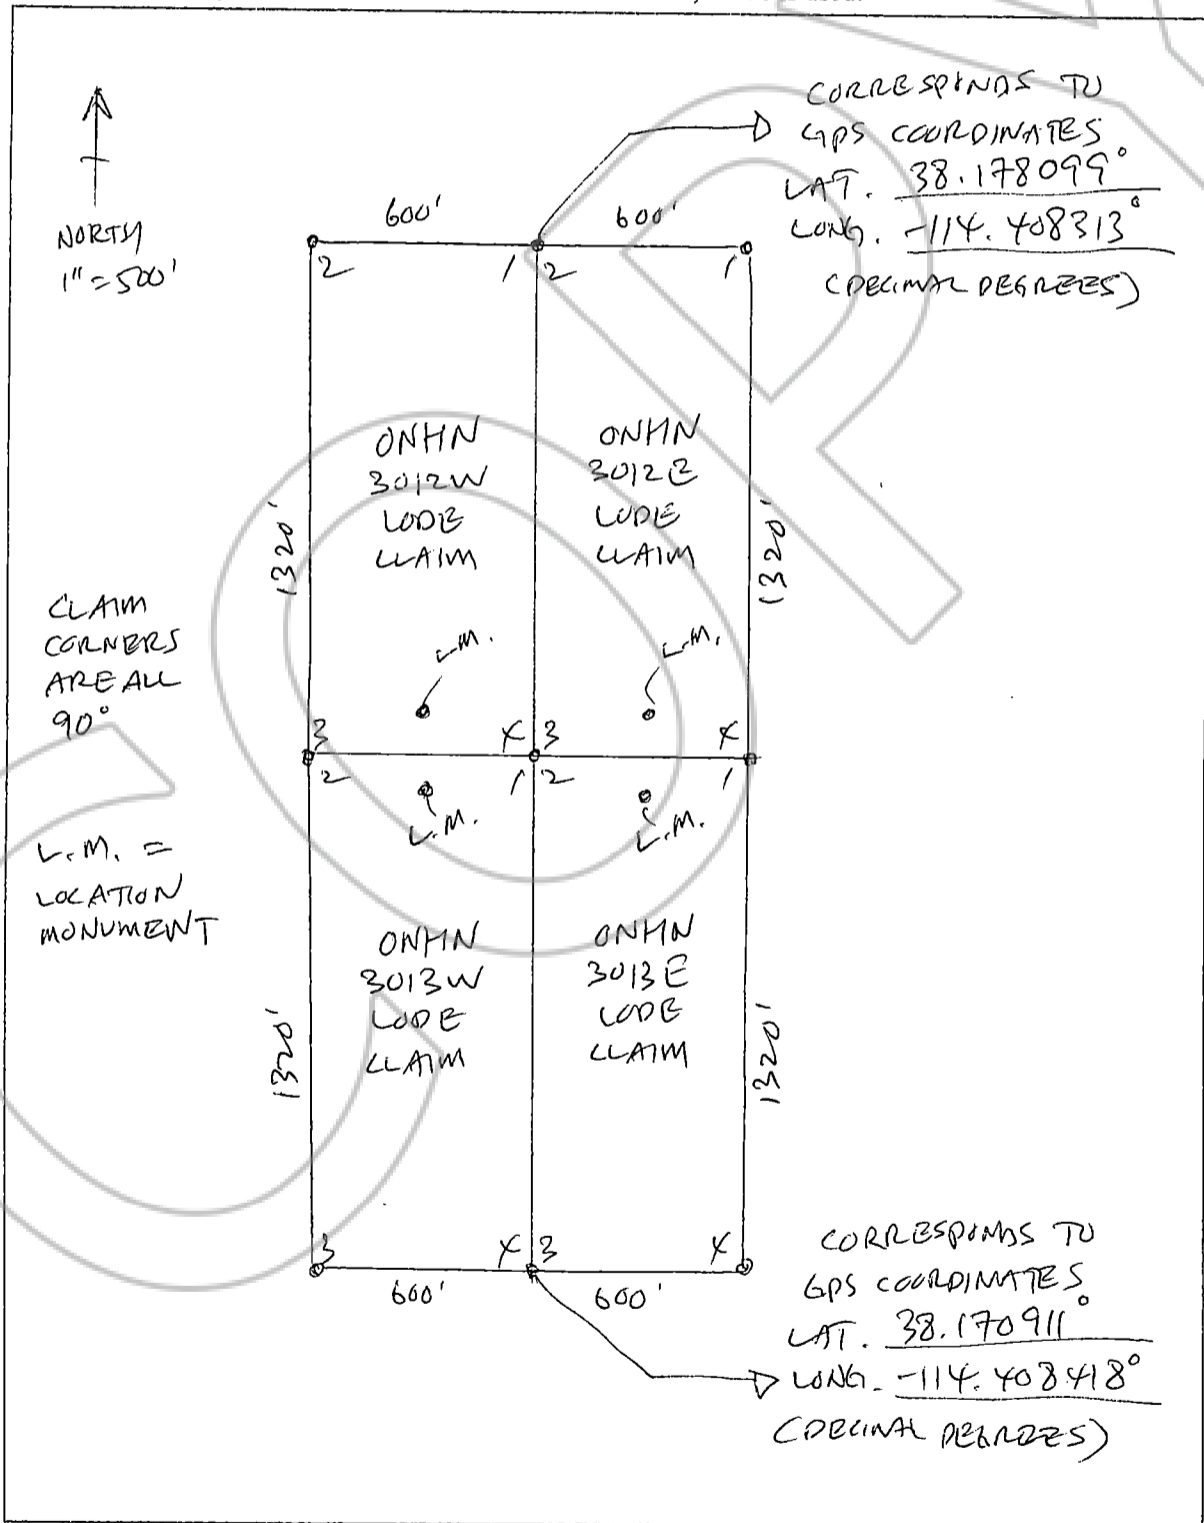 CORRESPONDS TO
GPS COORDINATES
LAT. 38.178099°
LONG. -114.408313°
(DECIMAL DEGREES)
NORTH
1" = 500'
600'
600'
2
1
2
1
ONHN
3012W
LODE
CLAIM
ONHN
3012E
LODE
CLAIM
1320'
1320'
CLAIM
CORNERS
ARE ALL
90°
L.M.
L.M.
3
4
3
4
2
1
2
1
L.M.
L.M.
L.M. =
LOCATION
MONUMENT
ONHN
3013W
LODE
CLAIM
ONHN
3013E
LODE
CLAIM
1320'
1320'
3
4
3
4
600'
600'
CORRESPONDS TO
GPS COORDINATES
LAT. 38.170911°
LONG. -114.408418°
(DECIMAL DEGREES)